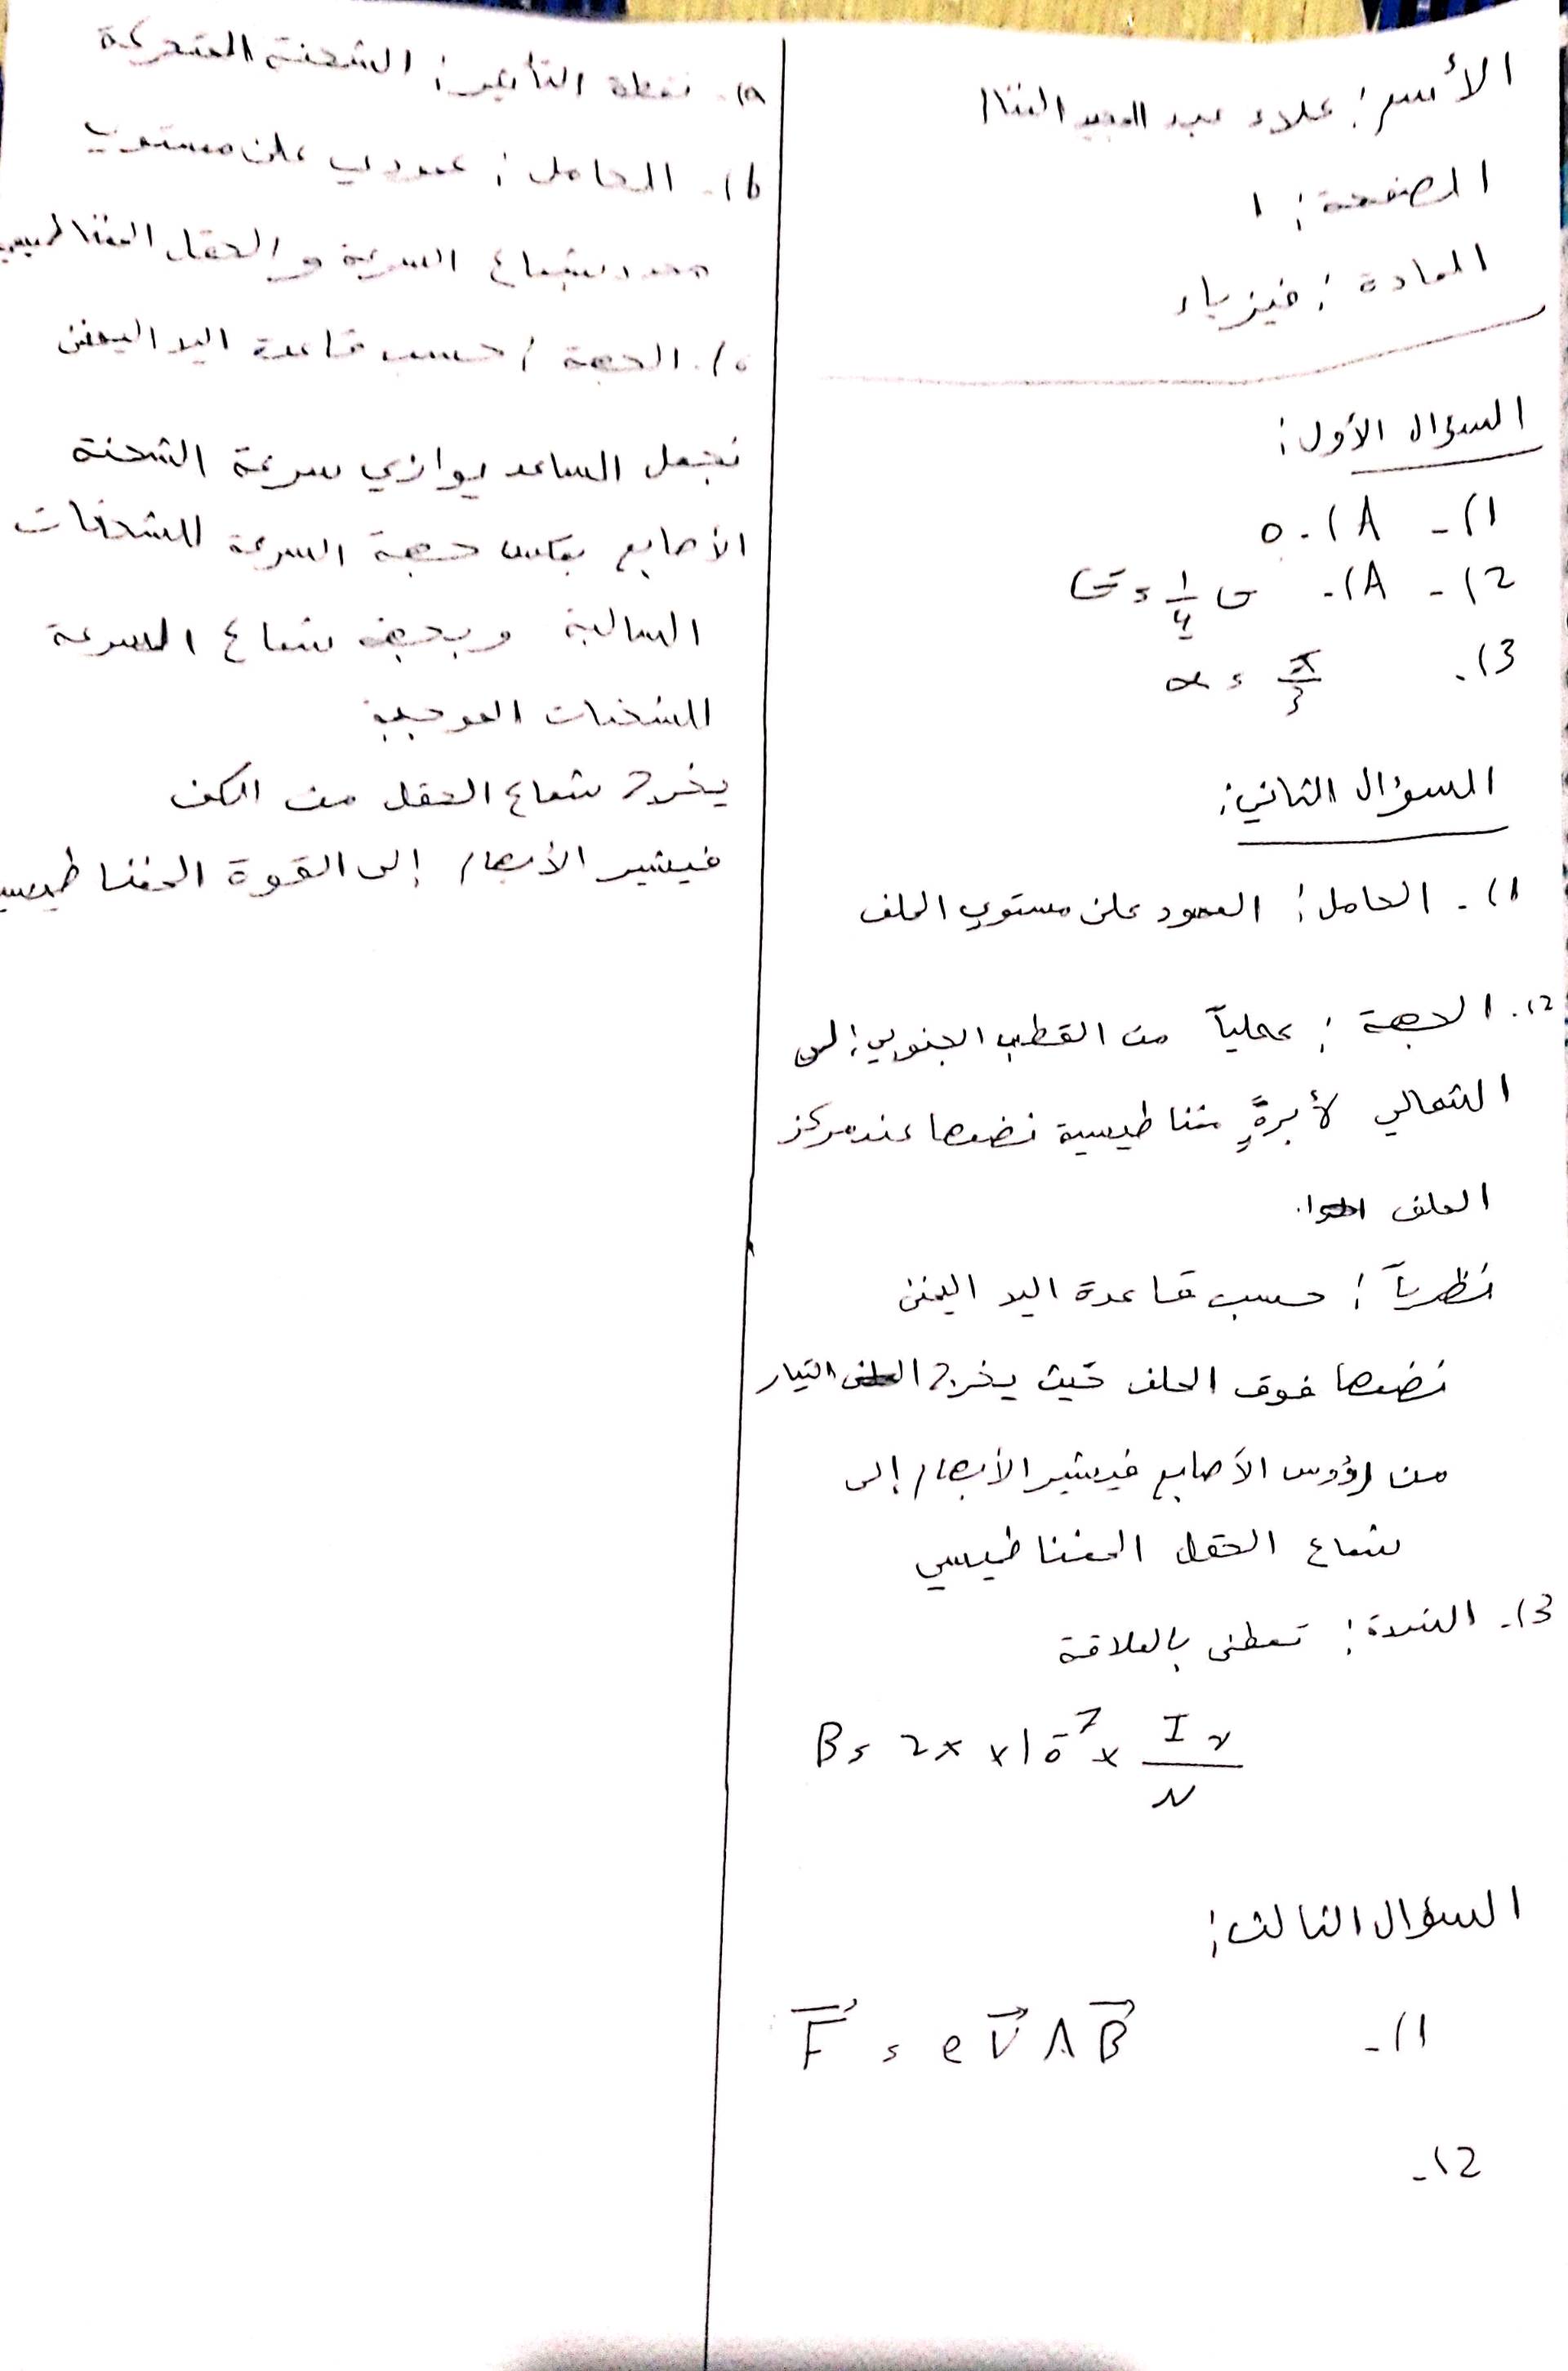 الأسم: علاء عبد المجيد
الصفحة: ١
المادة: فيزياء
السؤال الأول:
1)- A). 0
2)- A)- G̅ = 1/4 G
3). α = π/3
السؤال الثاني:
1)- الحامل: العمود على مستوي الملف
2)- الجهة: عملياً من القطب الجنوبي إلى
الشمالي لأبرةٍ مغناطيسية نضعها عند مركز
الملف
نظرياً: حسب قاعدة اليد اليمنى
نضعها فوق الملف حيث يخرج التيار
من رؤوس الأصابع فيشير الأبهام إلى
شعاع الحقل المغناطيسي
3)- الشدة: تعطى بالعلاقة
B = 2π × 10⁻⁷ × I N / r
السؤال الثالث:
1)- F⃗ = e V⃗ Λ B⃗
2)-
a)- نقطة التأثير: الشحنة المتحركة
b)- الحامل: عمودي على مستوي
شعاع السرعة و الحقل المغناطيسي
c)- الجهة: حسب قاعدة اليد اليمنى
نجعل الساعد يوازي سرعة الشحنة
الأصابع بعكس جهة السرعة للشحنات
السالبة وبجهة شعاع السرعة
للشحنات الموجبة
يخرج شعاع الحقل من الكف
فيشير الأبهام إلى القوة المغناطيسية